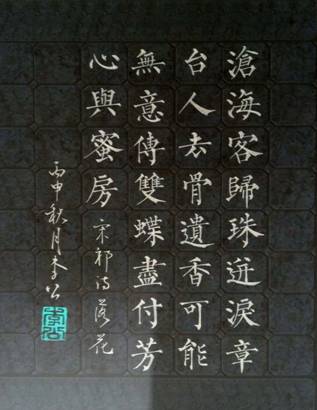 滄海客歸珠迸淚章
台人去骨遺香可能
無意傳雙蝶盡付芳
心與蜜房宋祁詩落花
丙申秋月李公